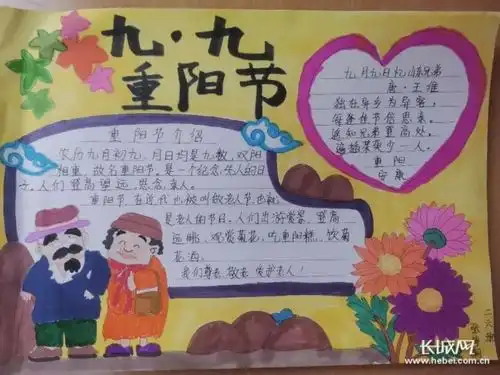 九·九
重阳节
九月九日忆山东兄弟
唐·王维
独在异乡为异客,
每逢佳节倍思亲。
遥知兄弟登高处,
遍插茱萸少一人。
重阳
安康
重阳节介绍
农历九月初九,月日均是九数,双阳
相重,故名重阳节。是一个纪念先人的日
子。人们登高望远,思念亲人。
重阳节,在近代也被叫敬老人节也就
是老人的节日。人们出游赏景、登高
远眺、观赏菊花、吃重阳糕、饮菊
花酒。
我们尊老、敬老、爱护老人!
长城网
www.hebei.com.cn